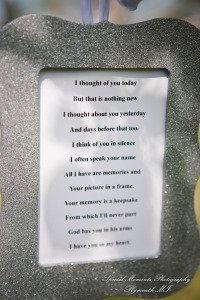 I thought of you today
But that is nothing new
I thought about you yesterday
And days before that too.
I think of you in silence
I often speak your name
All I have are memories and
Your picture in a frame.
Your memory is a keepsake
From which I'll never part
God has you in his arms
I have you in my heart.
Sweet Moments Photography
Plymouth M.I.